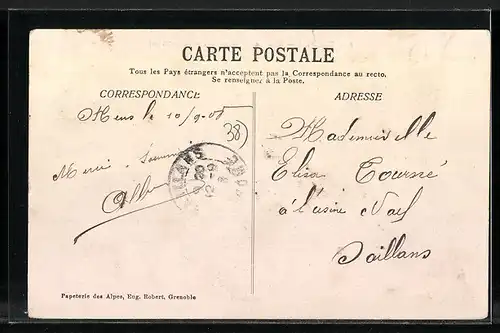 CARTE POSTALE
Tous les Pays étrangers n'acceptent pas la Correspondance au recto.
Se renseigner à la Poste.
CORRESPONDANCE
ADRESSE
Mens le 10/9-08
38)
Merci
Mademoiselle
Elisa Tourné
à l'usine
Saillans
SAILLANS
Papeterie des Alpes, Eug. Robert, Grenoble